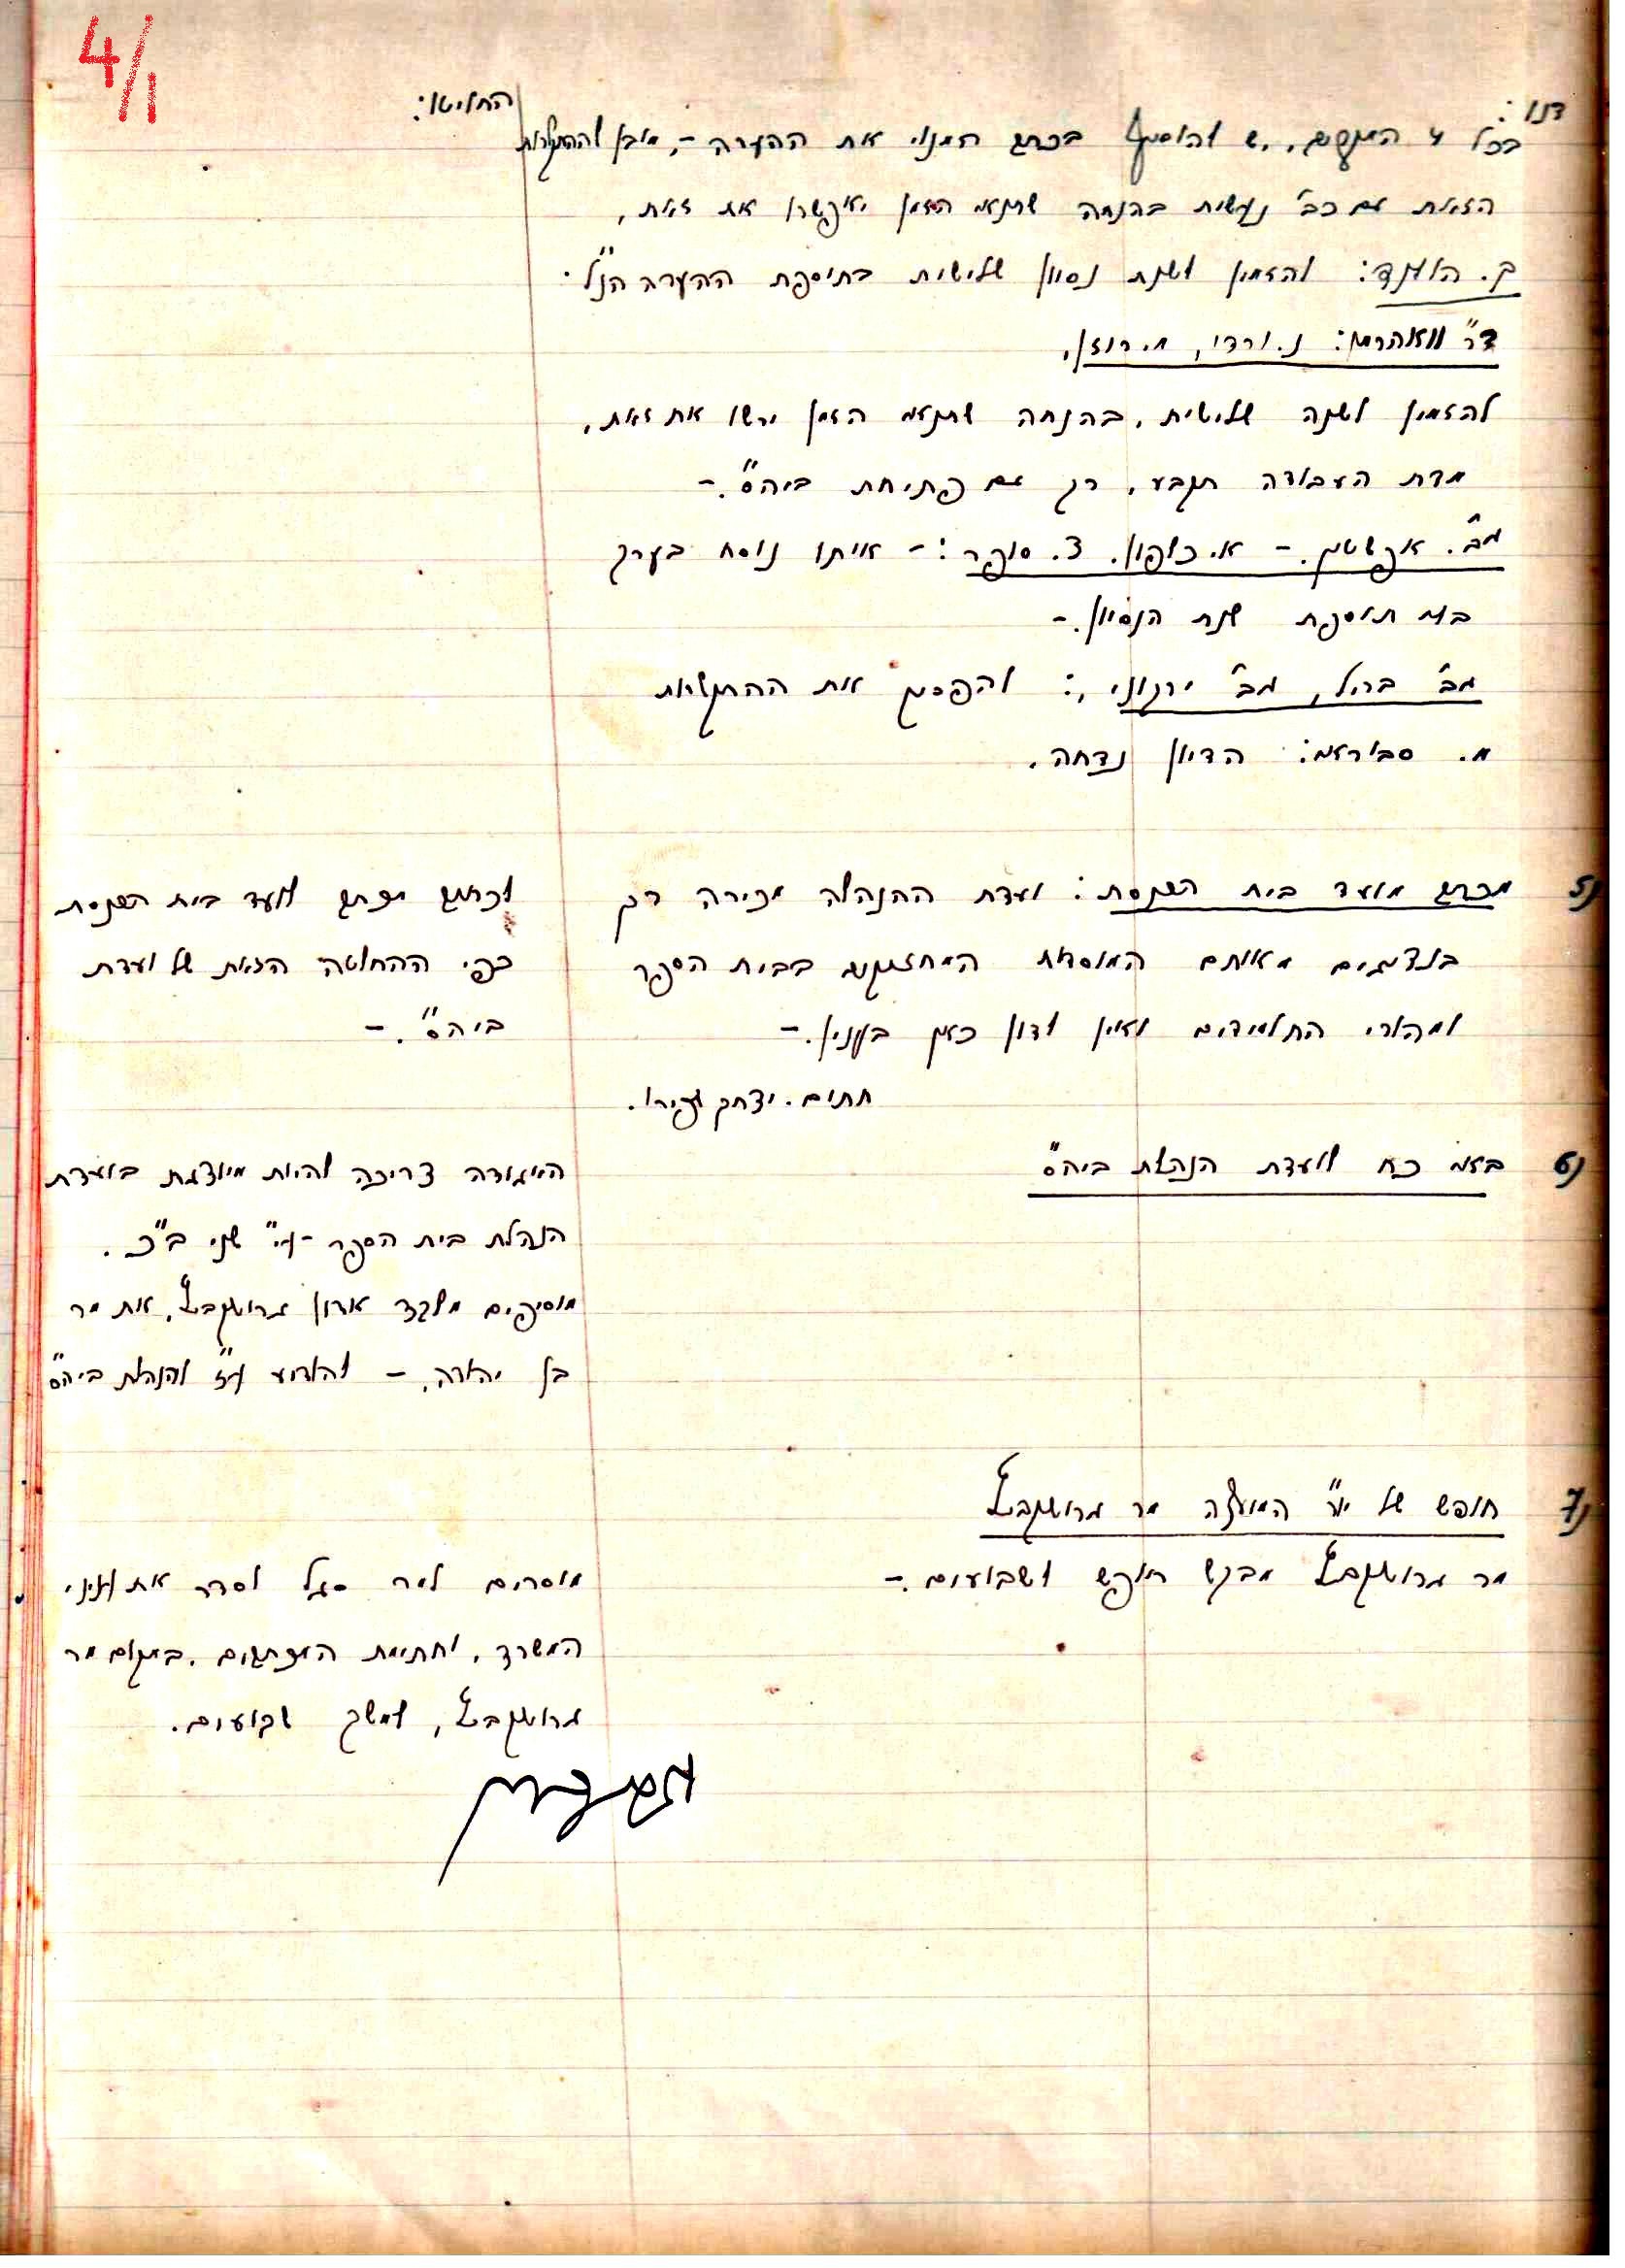 4/1
דנו:
החליטו:
בכל המקרים, יש להוסיף בכתב המנוי את ההערה –, מובן
הזאת גם כב' נעשית בהנחה שתנאי הזמן יאפשרו את זאת,
ק. הולנד: להזמין לשנת נסיון שלישית בתוספת ההערה הנ"ל.
ד"ר וואהרמן: נ. ורדי, מ. רוזן,
להזמין לשנה שלישית, בהנחה שתנאי הזמן ירשו את זאת,
מדת העבודה תקבע, רק עם פתיחת ביה"ס.–
גב'. אפשטין. – א. כלפון. צ. סופר: – אותו נוסח בערך
בלי תוספת שנת הנסיון.–
גב' ברל, גב' ירקוני,: להפסיק את ההתקשרות
מ. סבוראי: הדיון נדחה.
5) מכתב מועד בית הכנסת: ועדת ההנהלה מכירה רק
בנציגים מאותם המוסדות המחזיקים בבית הספר
ומהורי התלמידים ואין לדון כאן בענין.–
חתום. יצחק שפירו.
לכתוב מכתב לועד בית הכנסת
כפי ההחלטה הזאת של ועדת
ביה"ס.–
6) באי כח לועדת הנהלת ביה"ס
האיגודה צריכה להיות מיוצגת בועדת
הנהלת בית הספר ע"י שני ב"כ.
מוסיפים מלבד אדון גרושקביץ, את מר
בן יהודה. – להודיע ע"ז להנהלת ביה"ס
7) חופש של יו"ר המועצה מר גרושקביץ
מר גרושקביץ מבקש חופש לשבועים.–
מוסרים למר סגל לסדר את עניני
המשרד, וחתימת המכתבים, במקום מר
גרושקביץ, למשך שבועים.